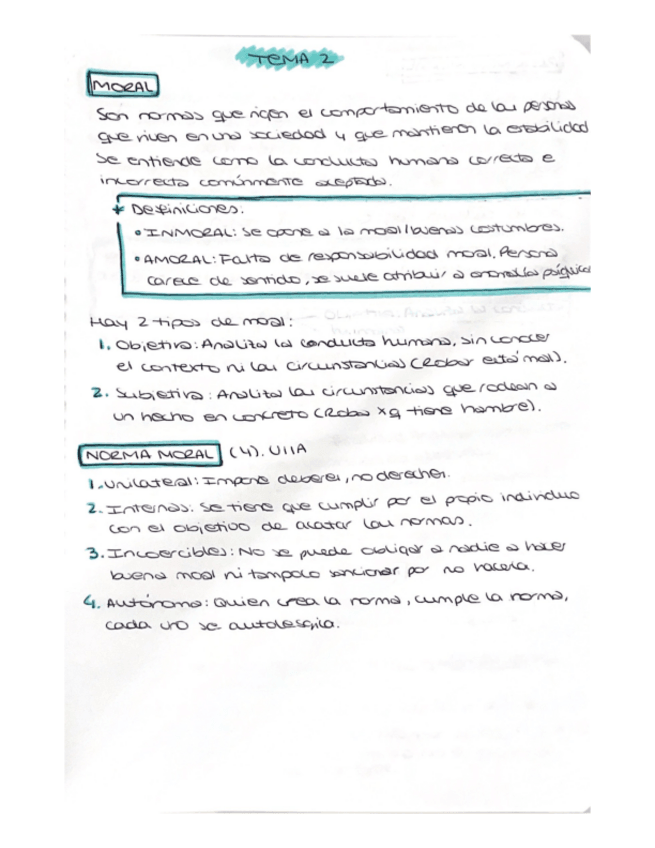 TEMA 2
MORAL
Son normas que rigen el comportamiento de las personas
que viven en una sociedad y que mantienen la estabilidad
Se entiende como la conducta humana correcta e
incorrecta comúnmente aceptada.
* Definiciones:
• INMORAL: Se opone a la moral/buenas costumbres.
• AMORAL: Falta de responsabilidad moral. Persona
carece de sentido, se suele atribuir a anomalías psíquicas
Hay 2 tipos de moral:
1. Objetiva: Analiza la conducta humana, sin conocer
el contexto ni las circunstancias (Robar está mal).
2. Subjetiva: Analiza las circunstancias que rodean a
un hecho en concreto (Roba xq tiene hambre).
NORMA MORAL (4). UIIA
1. Unilateral: Impone deberes, no derechos.
2. Internas: Se tiene que cumplir por el propio individuo
con el objetivo de acatar las normas.
3. Incoercibles: No se puede obligar a nadie a hacer
buena moral ni tampoco sancionar por no hacerla.
4. Autónoma: Quien crea la norma, cumple la norma,
cada uno se autolegisla.